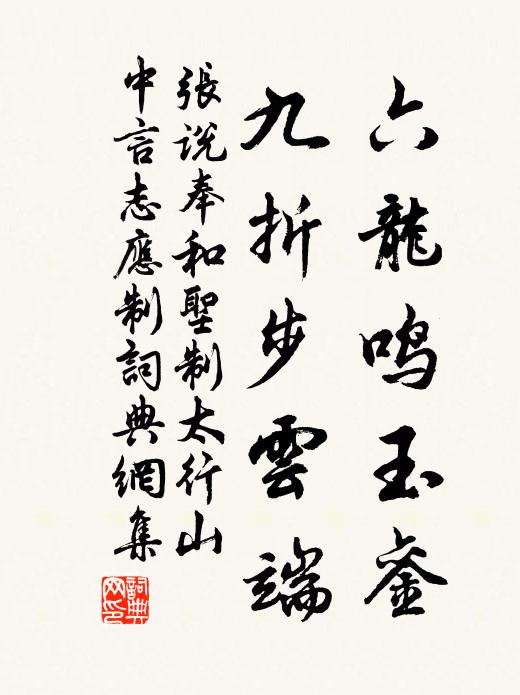 六龍鸣玉銮
九折步雲端
張说奉和聖制太行山
中言志應制詞典網集
詞典
网印